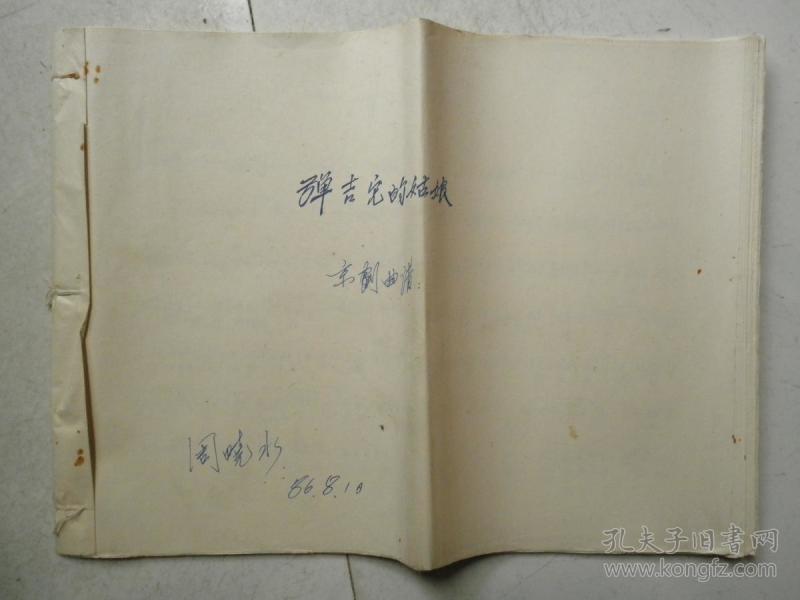 弹吉它的姑娘
京剧曲谱:
周晓水
86.8.10
孔夫子旧书网
www.kongfz.com